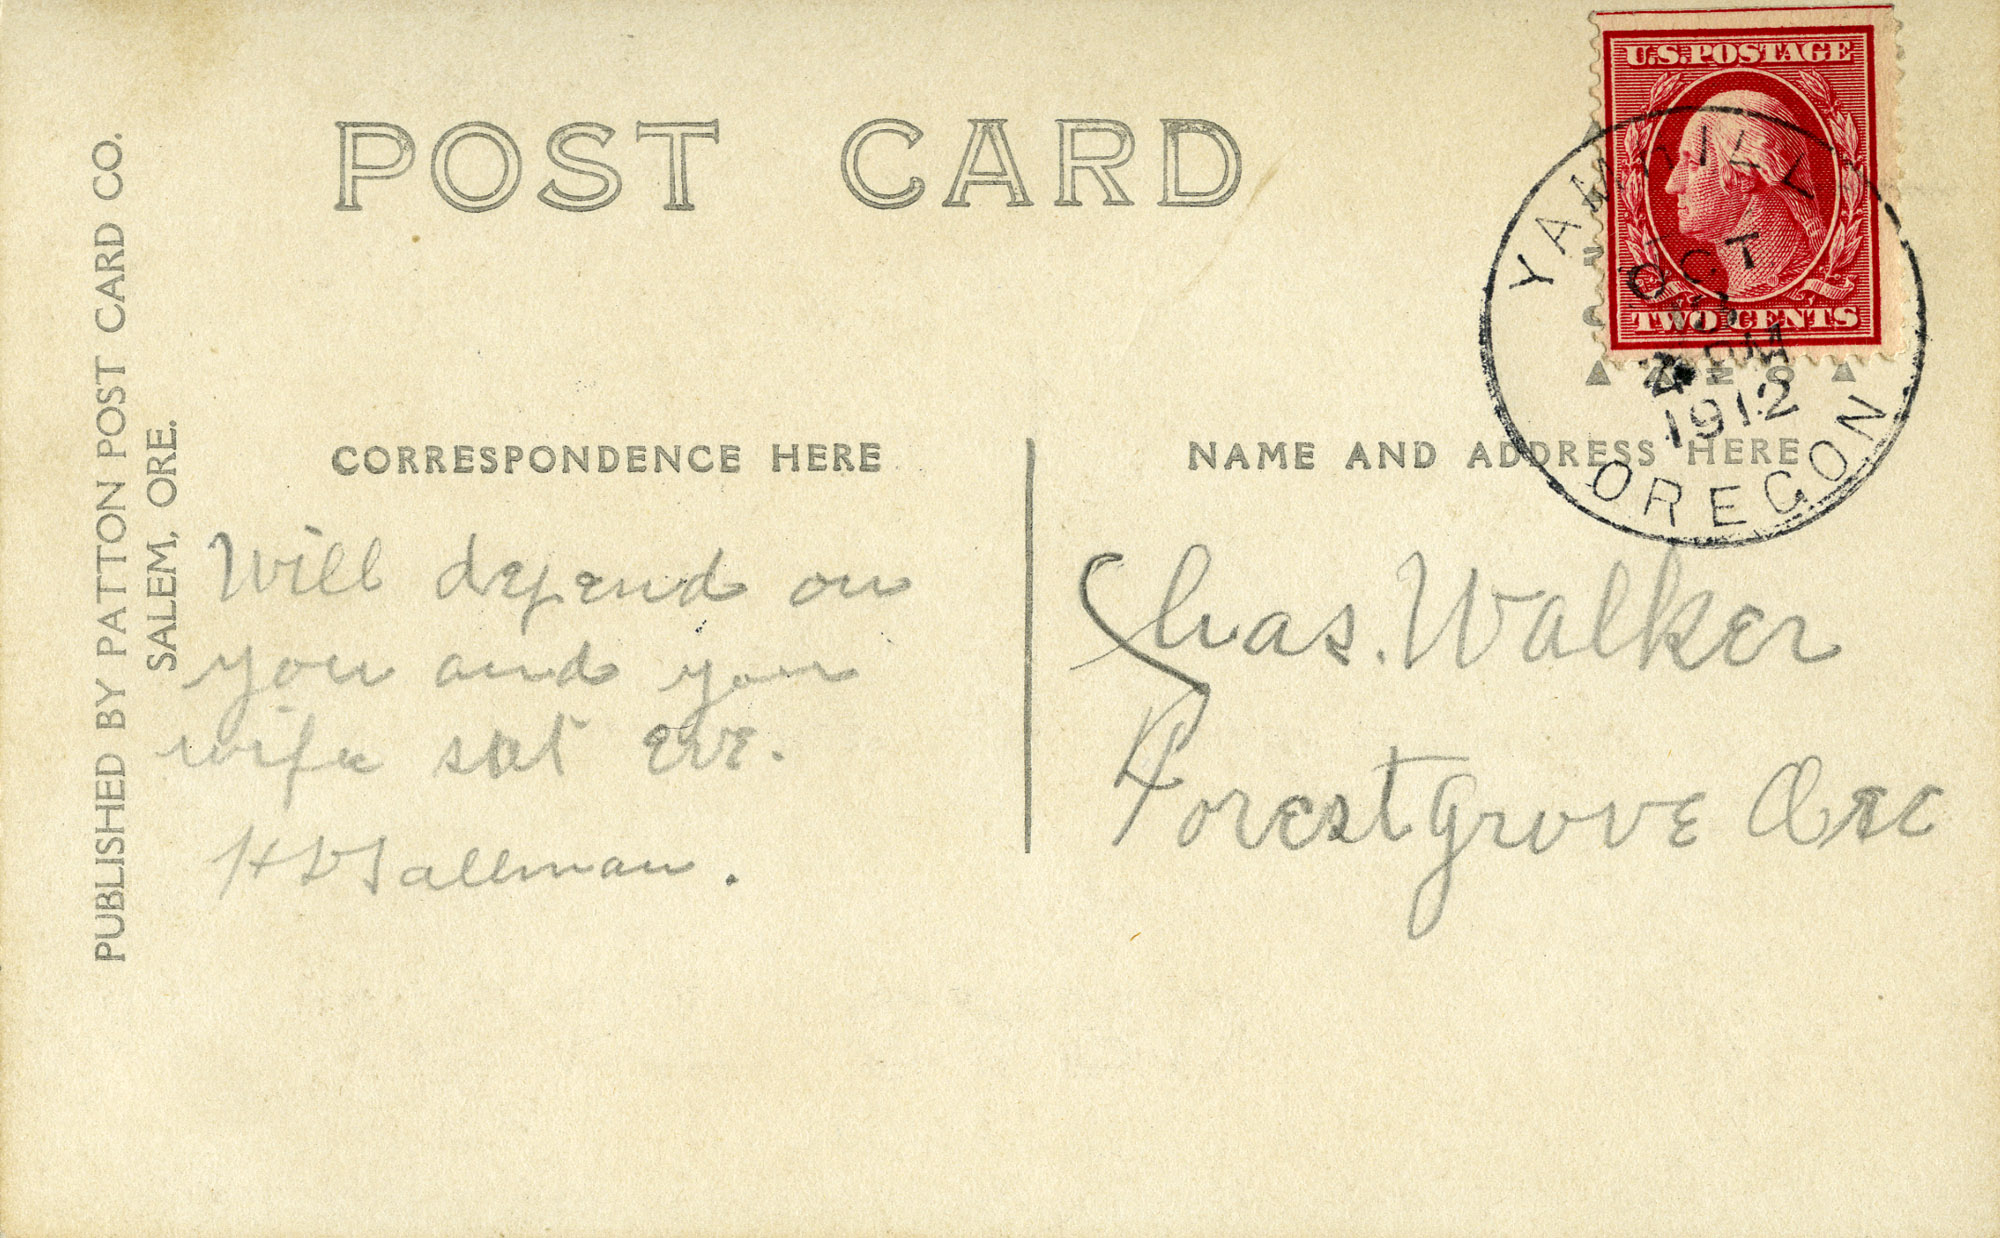 POST CARD
PUBLISHED BY PATTON POST CARD CO.
SALEM, ORE.
U.S. POSTAGE
TWO CENTS
YAMHILL
OCT
PM
1912
OREGON
CORRESPONDENCE HERE
NAME AND ADDRESS HERE
Will depend on
you and your
wife sat eve.
Tallman.
Chas. Walker
Forestgrove Ore